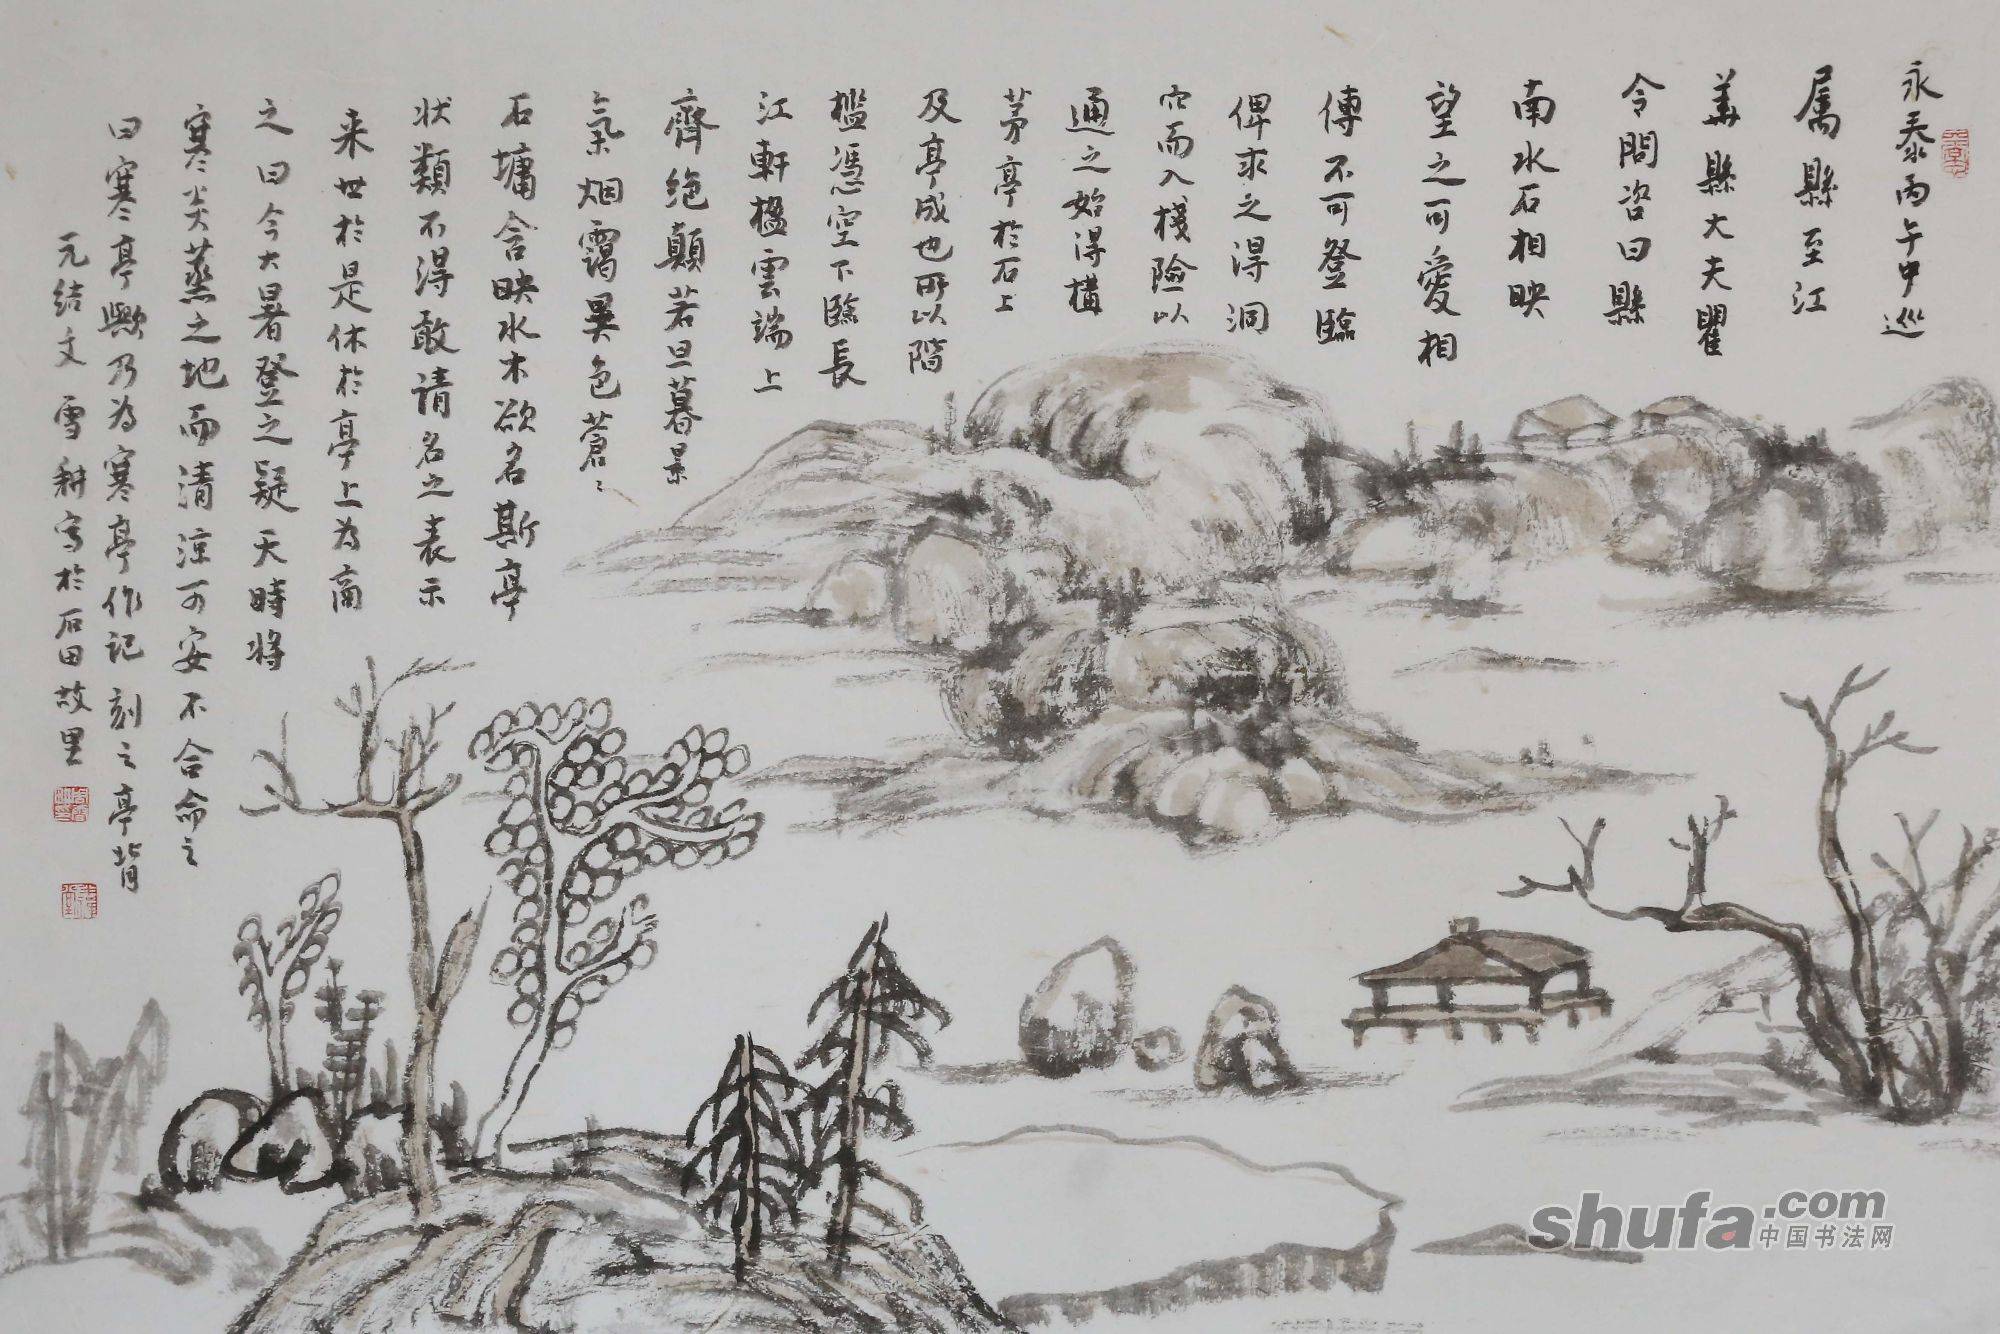 永泰丙午中巡
属縣至江
華縣大夫瞿
令問咨曰縣
南水石相映
望之可愛相
傳不可登臨
俾求之得洞
穴而入棧險以
通之始得構
茅亭於石上
及亭成也所以階
檻憑空下臨長
江軒楹雲端上
齊絶顛若旦暮景
氣烟靄異色蒼〻
石墉含映水木欲名斯亭
状類不得敢请名之表示
来世於是休於亭上为商
之曰今大暑登之疑天時将
寒炎蒸之地而清涼可安不合命之
曰寒亭歟乃为寒亭作记刻之亭背
元结文 雪耕写於石田故里
shufa.com
中国书法网